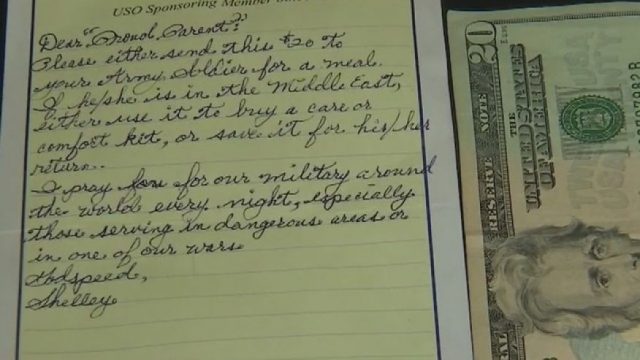 USO Sponsoring Member
Dear "Proud Parent":
Please either send this $20 to
your Army Soldier for a meal.
If he/she is in the Middle East,
either use it to buy a care or
comfort kit, or save it for his/her
return..
I pray for for our military around
the world every night, especially
those serving in dangerous areas or
in one of our wars.
Godspeed,
Shelley
20
RESERVE NOTE
THE
UNITED STATES
OF AMERICA